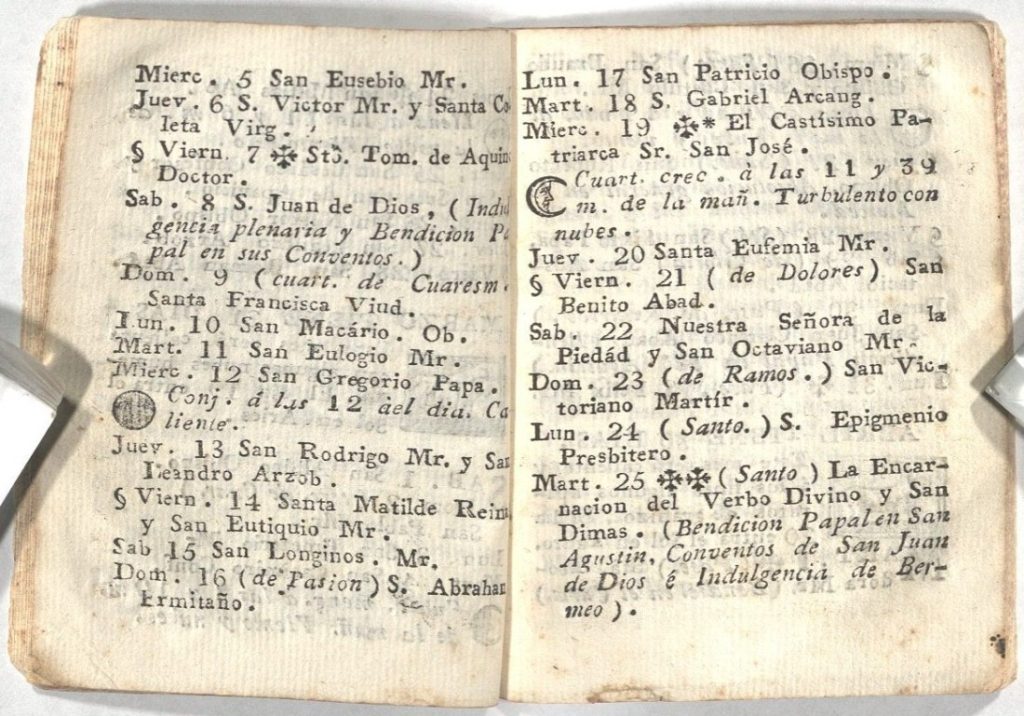 Mierc. 5 San Eusebio Mr.
Juev. 6 S. Victor Mr. y Santa Co
leta Virg.
§ Viern. 7 ✠ Sto. Tom. de Aquin
Doctor.
Sab. 8 S. Juan de Dios, (Indul
gencia plenaria y Bendicion Pa
pal en sus Conventos.)
Dom. 9 (cuart. de Cuaresm.
Santa Francisca Viud.
Lun. 10 San Macário. Ob.
Mart. 11 San Eulogio Mr.
Mierc. 12 San Gregorio Papa.
Conj. á las 12 del dia. Ca
liente.
Juev. 13 San Rodrigo Mr. y San
Leandro Arzob.
§ Viern. 14 Santa Matilde Reina
y San Eutiquio Mr.
Sab 15 San Longinos. Mr.
Dom. 16 (de Pasion) S. Abrahan
Ermitaño.
Lun. 17 San Patricio Obispo.
Mart. 18 S. Gabriel Arcang.
Mierc. 19 ✠* El Castísimo Pa-
triarca Sr. San José.
Cuart. crec. à las 11 y 39
m. de la mañ. Turbulento con
nubes.
Juev. 20 Santa Eufemia Mr.
§ Viern. 21 (de Dolores) San
Benito Abad.
Sab. 22 Nuestra Señora de la
Piedád y San Octaviano Mr.
Dom. 23 (de Ramos.) San Vic-
toriano Martír.
Lun. 24 (Santo.) S. Epigmenio
Presbitero.
Mart. 25 ✠✠ (Santo) La Encar-
nacion del Verbo Divino y San
Dimas. (Bendicion Papal en San
Agustin, Conventos de San Juan
de Dios é Indulgencia de Ber-
meo).